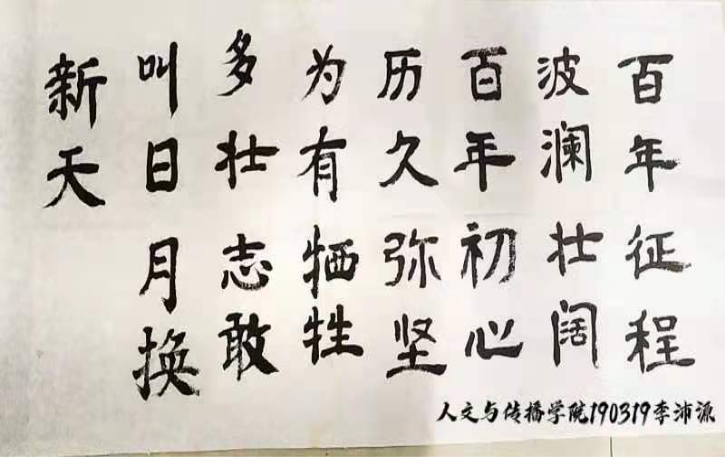 百年征程
波澜壮阔
百年初心
历久弥坚
为有牺牲
多壮志敢
叫日月换
新天
人文与传播学院190319李沛源